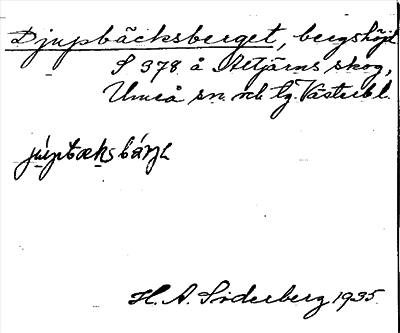 Djupbäcksberget, bergshöjd
S 378 å Altjärns skog,
Umeå sn och lg. Västerbl.
H. A. Söderberg 1935